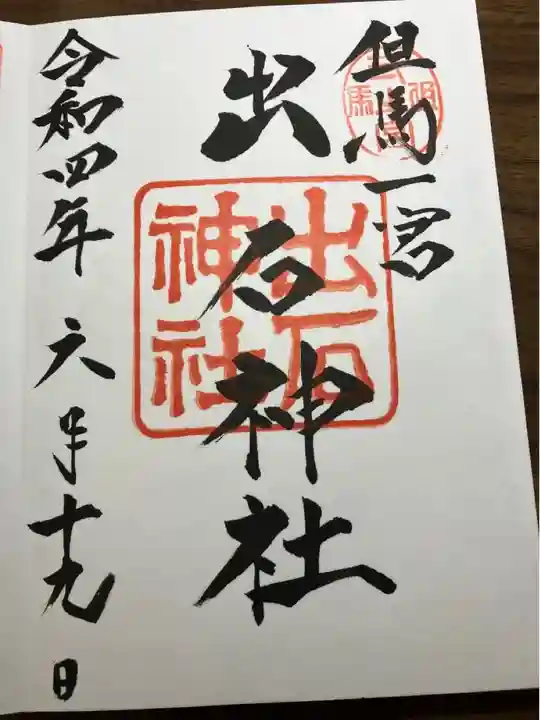 但馬一宮
出石神社
出石
神社
令和四年 六月十九日